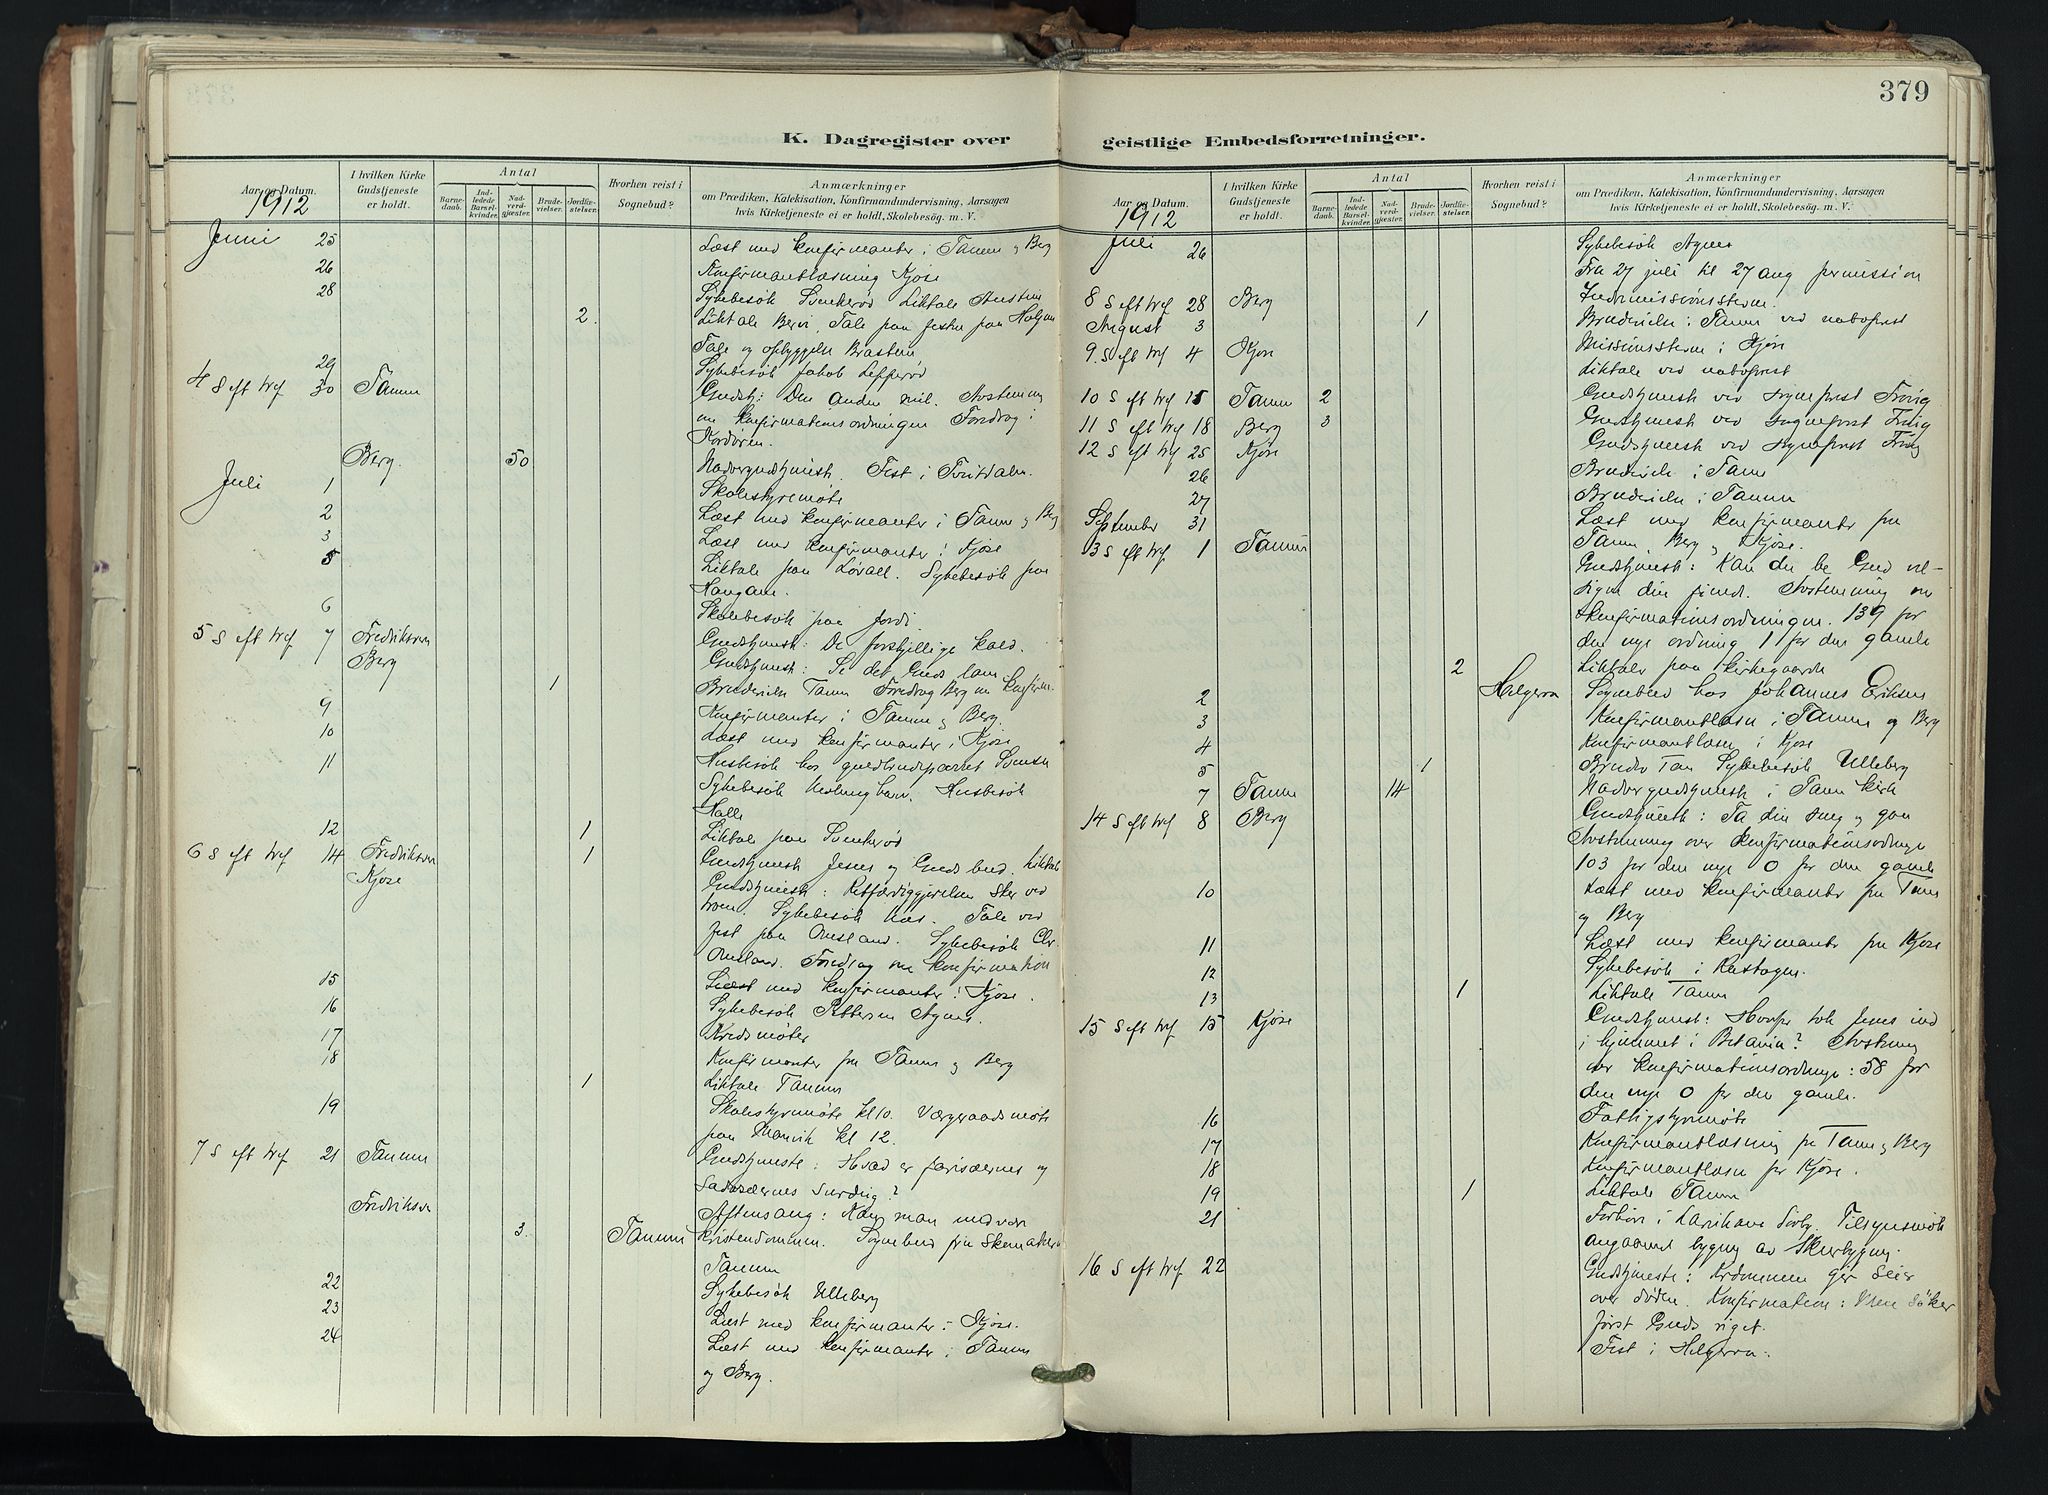 379
K. Dagregister over
Aar og Datum.
1912
I hvilken Kirke Gudstjeneste er holdt.
Antal
Barne-daab.
Ind-ledede Barsel-kvinder.
Nad-verd-gjæster.
Brude-vielser.
Jordfæ-stelser.
Hvorhen reist i Sognebud?
Anmærkninger
om Prædiken, Katekisation, Konfirmandundervisning, Aarsagen
hvis Kirketjeneste ei er holdt, Skolebesøg. m. V.
Juni 25 Læst med konfirmanter i Tanum og Berg
26 Konfirmantlæsning Kjose
28 Sykebesök Liktale
2. Liktale Tale paa festen paa
Tale og opbyggelse
29 Sykebesök Jakob
4 S eft tref 30 Tanum Gudstj: Den anden mil. Avstemning
om konfirmationsordningen Foredrag i
Berg. 50 Nadvergudstjenest. Fest i
Juli 1 Skolestyremöte
2 Læst med konfirmanter i Tanum og Berg
3 Læst med konfirmanter i Kjose
5 Liktale paa Sykebesök paa
6 Skolebesök paa Jordi
5 S eft tref 7 Fredriksvern Gudstjenest: De forskjellige kald.
Berg Gudstjenest: Se det Guds lam
1 Brudevielse Tanum Foredrag Berg om konfirm.
9 Konfirmanter i Tanum og Berg.
10 Læst med konfirmanter i Kjose
11 Husbesök hos
Sykebesök Husbesök
Halle
12 1 Liktale paa
6 S eft tref 14 Fredriksvern 1 Gudstjenest Jesus og Guds bud. Liktale
Kjose Gudstjenest: Retfærdiggjörelsen sker ved
troen. Sykebesök Tale ved
fest paa Omsland. Sykebesök
Omsland. Foredrag om konfirmation
15 Læst med konfirmanter i Kjose.
16 Sykebesök Pettersen Agnes.
17 Kredsmöter
18 Konfirmanter fra Tanum og Berg
1 Liktale Tanum
19 Skolestyremöte kl 10. Værgeraadsmöte
paa kl 12.
7 S eft tref 21 Tanum Gudstjeneste: Hvad er farisæernes og
sadusæernes surdeig?
Fredriksvern Aftensang: man
3. Tanum kristendommen. Sognebud fru
Tanum
22 Sykebesök Ulleberg
23 Læst med konfirmanter i Kjose.
24 Læst med konfirmanter i Tanum
og Berg.
geistlige Embedsforretninger.
Aar og Datum.
1912
I hvilken Kirke Gudstjeneste er holdt.
Antal
Barne-daab.
Ind-ledede Barsel-kvinder.
Nad-verd-gjæster.
Brude-vielser.
Jordfæ-stelser.
Hvorhen reist i Sognebud?
Anmærkninger
om Prædiken, Katekisation, Konfirmandundervisning, Aarsagen
hvis Kirketjeneste ei er holdt, Skolebesøg. m. V.
Juli 26 Sykebesök Agnes
Fra 27 juli til 27 aug permission
8 S eft tref 28 Berg Indremissionsstevne.
August 3 1 Brudevielse i Tanum ved naboprest
9. S eft tref 4 Kjose Missionsstevne i Kjose
Liktale ved naboprest
10 S eft tref 15 Tanum 2 Gudstjenest ved sogneprest
11 S eft tref 18 Berg 3 Gudstjenest ved sogneprest
12 S eft tref 25 Kjose Gudstjenest ved sogneprest
26 Brudevielse i Tanum
27 Brudevielse i Tanum
September 31 Læst med konfirmanter fra
Tanum Berg og Kjose.
13 S eft tref 1 Tanum Gudstjenest: Kan du be Gud vel-
signe din fiende. Avstemning om
konfirmationsordningen. 139 for
den nye ordning 11 for den gamle
2 Liktaler paa kirkegaarde
Helgeroa Sognebud hos Johannes Eriksen
2 Konfirmantlæsn i Tanum og Berg
3 Konfirmantlæsn i Kjose
4
5 1 Brudev Tan Sykebesök Ulleberg
7 Tanum 14 Nadvergudstjenest i Tanum kirke
14 S eft tref 8 Berg Gudstjenest: Ta din seng og gaa
Avstemning over konfirmationsordnige
103 for den nye 0 for den gamle
10 Læst med konfirmanter fra Tanum
og Berg
11 Læst med konfirmanter fra Kjose
12 Sykebesök i
13 1 Liktale Tanum
15 S eft tref 15 Kjose Gudstjenest: Hvorfor tok Jesus ind
i hjemmet i Betania? Avstemning
over konfirmationsordnige: 58 for
den nye 0 for den gamle.
16 Fattigstyremöte
17 Konfirmantlæsning fra Tanum og Berg
18 Konfirmantlæsn for Kjose.
19 1 Liktale Tanum
21 Forhör i Larvikske Tilsynsmöte
angaaende bygning av
16 S eft tref 22 Gudstjeneste: Kristendommen gir seier
over döden. Konfirmation: Men söker
först Guds riget.
Fest i Helgeroa.